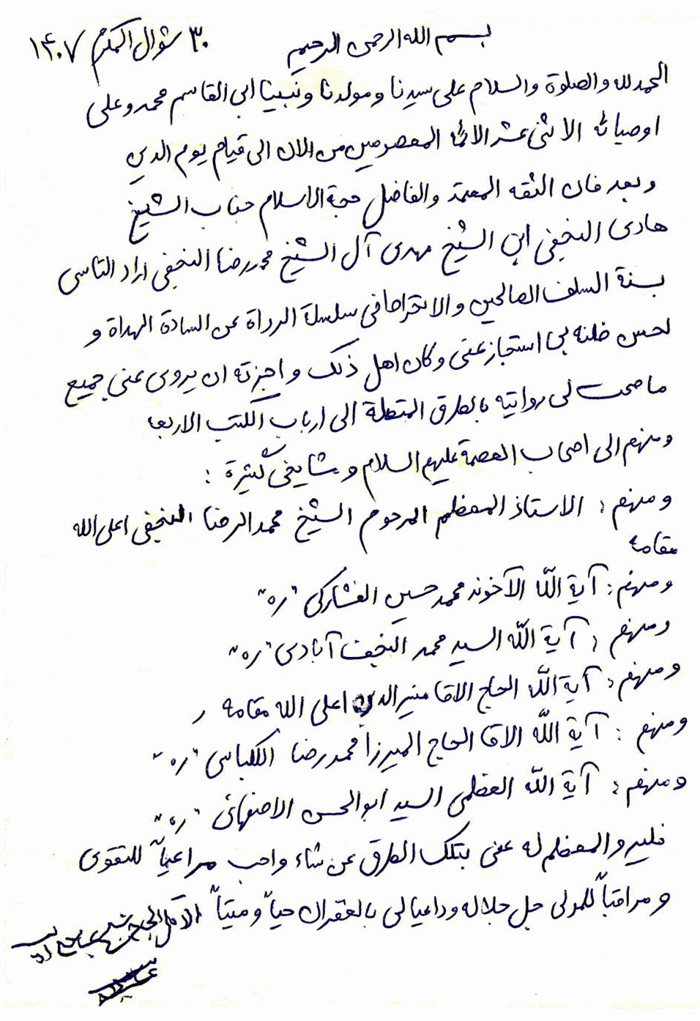 بسم الله الرحمن الرحیم ۳۰ شوال المکرم ۱۴۰۷
الحمد لله والصلوة والسلام علی سیدنا ومولدنا ونبینا ابی القاسم محمد وعلی
اوصیائه الاثنی عشر الائمة المعصومین من الان الی قیام یوم الدین
وبعد فان الثقه المعتمد والفاضل حجة الاسلام جناب الشیخ
هادی النجفی ابن الشیخ مهدی آل الشیخ محمدرضا النجفی اراد التاسی
بسنة السلف الصالحین والانخراط فی سلسلة الرواة عن السادة الهداة و
لحسن ظنه بی استجاز عنی وکان اهل ذلک واجزته ان یروی عنی جمیع
ما صحت لی روایته بالطرق المتصلة الی ارباب الکتب الاربعه
ومنهم الی اصحاب العصمة علیهم السلام ومشایخی کثیرة :
ومنهم : الاستاذ المعظم المرحوم الشیخ محمدالرضا النجفی اعلی الله
مقامه
ومنهم : آیة الله الآخوند محمد حسین الفشارکی "ره"
ومنهم : آیة الله السید محمد النجف آبادی "ره"
ومنهم : آیة الله الحاج الاقا منیرالدین اعلی الله مقامه
ومنهم : آیة الله الاقا الحاج المیرزا محمد رضا الکلباسی "ره"
ومنهم : آیة الله العظمی السید ابوالحسن الاصفهانی "ره"
فلیرو المعظم له عنی بتلک الطرق عن شاء واحب مراعیاً للتقوی
ومراقباً للمولی جل جلاله وداعیا لی بالغفران حیاً ومیتاً الاقل